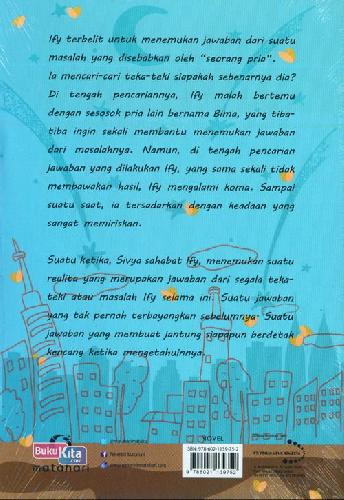 Ify terbelit untuk menemukan jawaban dari suatu
masalah yang disebabkan oleh "seorang pria".
Ia mencari-cari teka-teki siapakah sebenarnya dia?
Di tengah pencariannya, Ify malah bertemu
dengan sesosok pria lain bernama Bima, yang tiba-
tiba ingin sekali membantu menemukan jawaban
dari masalahnya. Namun, di tengah pencarian
jawaban yang dilakukan Ify, yang sama sekali tidak
membawakan hasil, Ify mengalami koma. Sampai
suatu saat, ia tersadarkan dengan keadaan yang
sangat memiriskan.
Suatu ketika, Sivya sahabat Ify, menemukan suatu
realita yang merupakan jawaban dari segala teka-
teki atau masalah Ify selama ini. Suatu jawaban
yang tak pernah terbayangkan sebelumnya. Suatu
jawaban yang membuat jantung siapapun berdetak
kencang ketika mengetahuinya.
NOVEL
BukuKita
.com
matahari